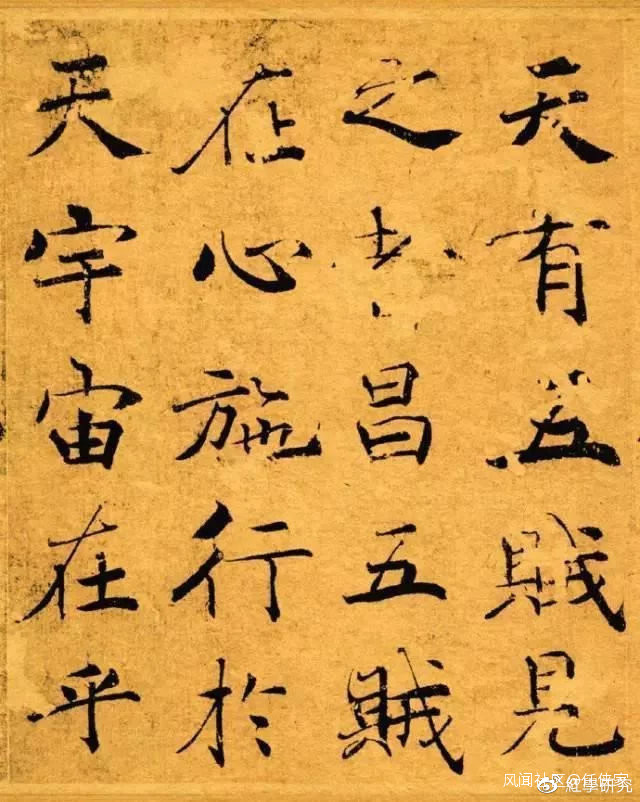 天有五賊見
之者昌五賊
在心施行於
天宇宙在乎
风闻社区@任
@紅學研究